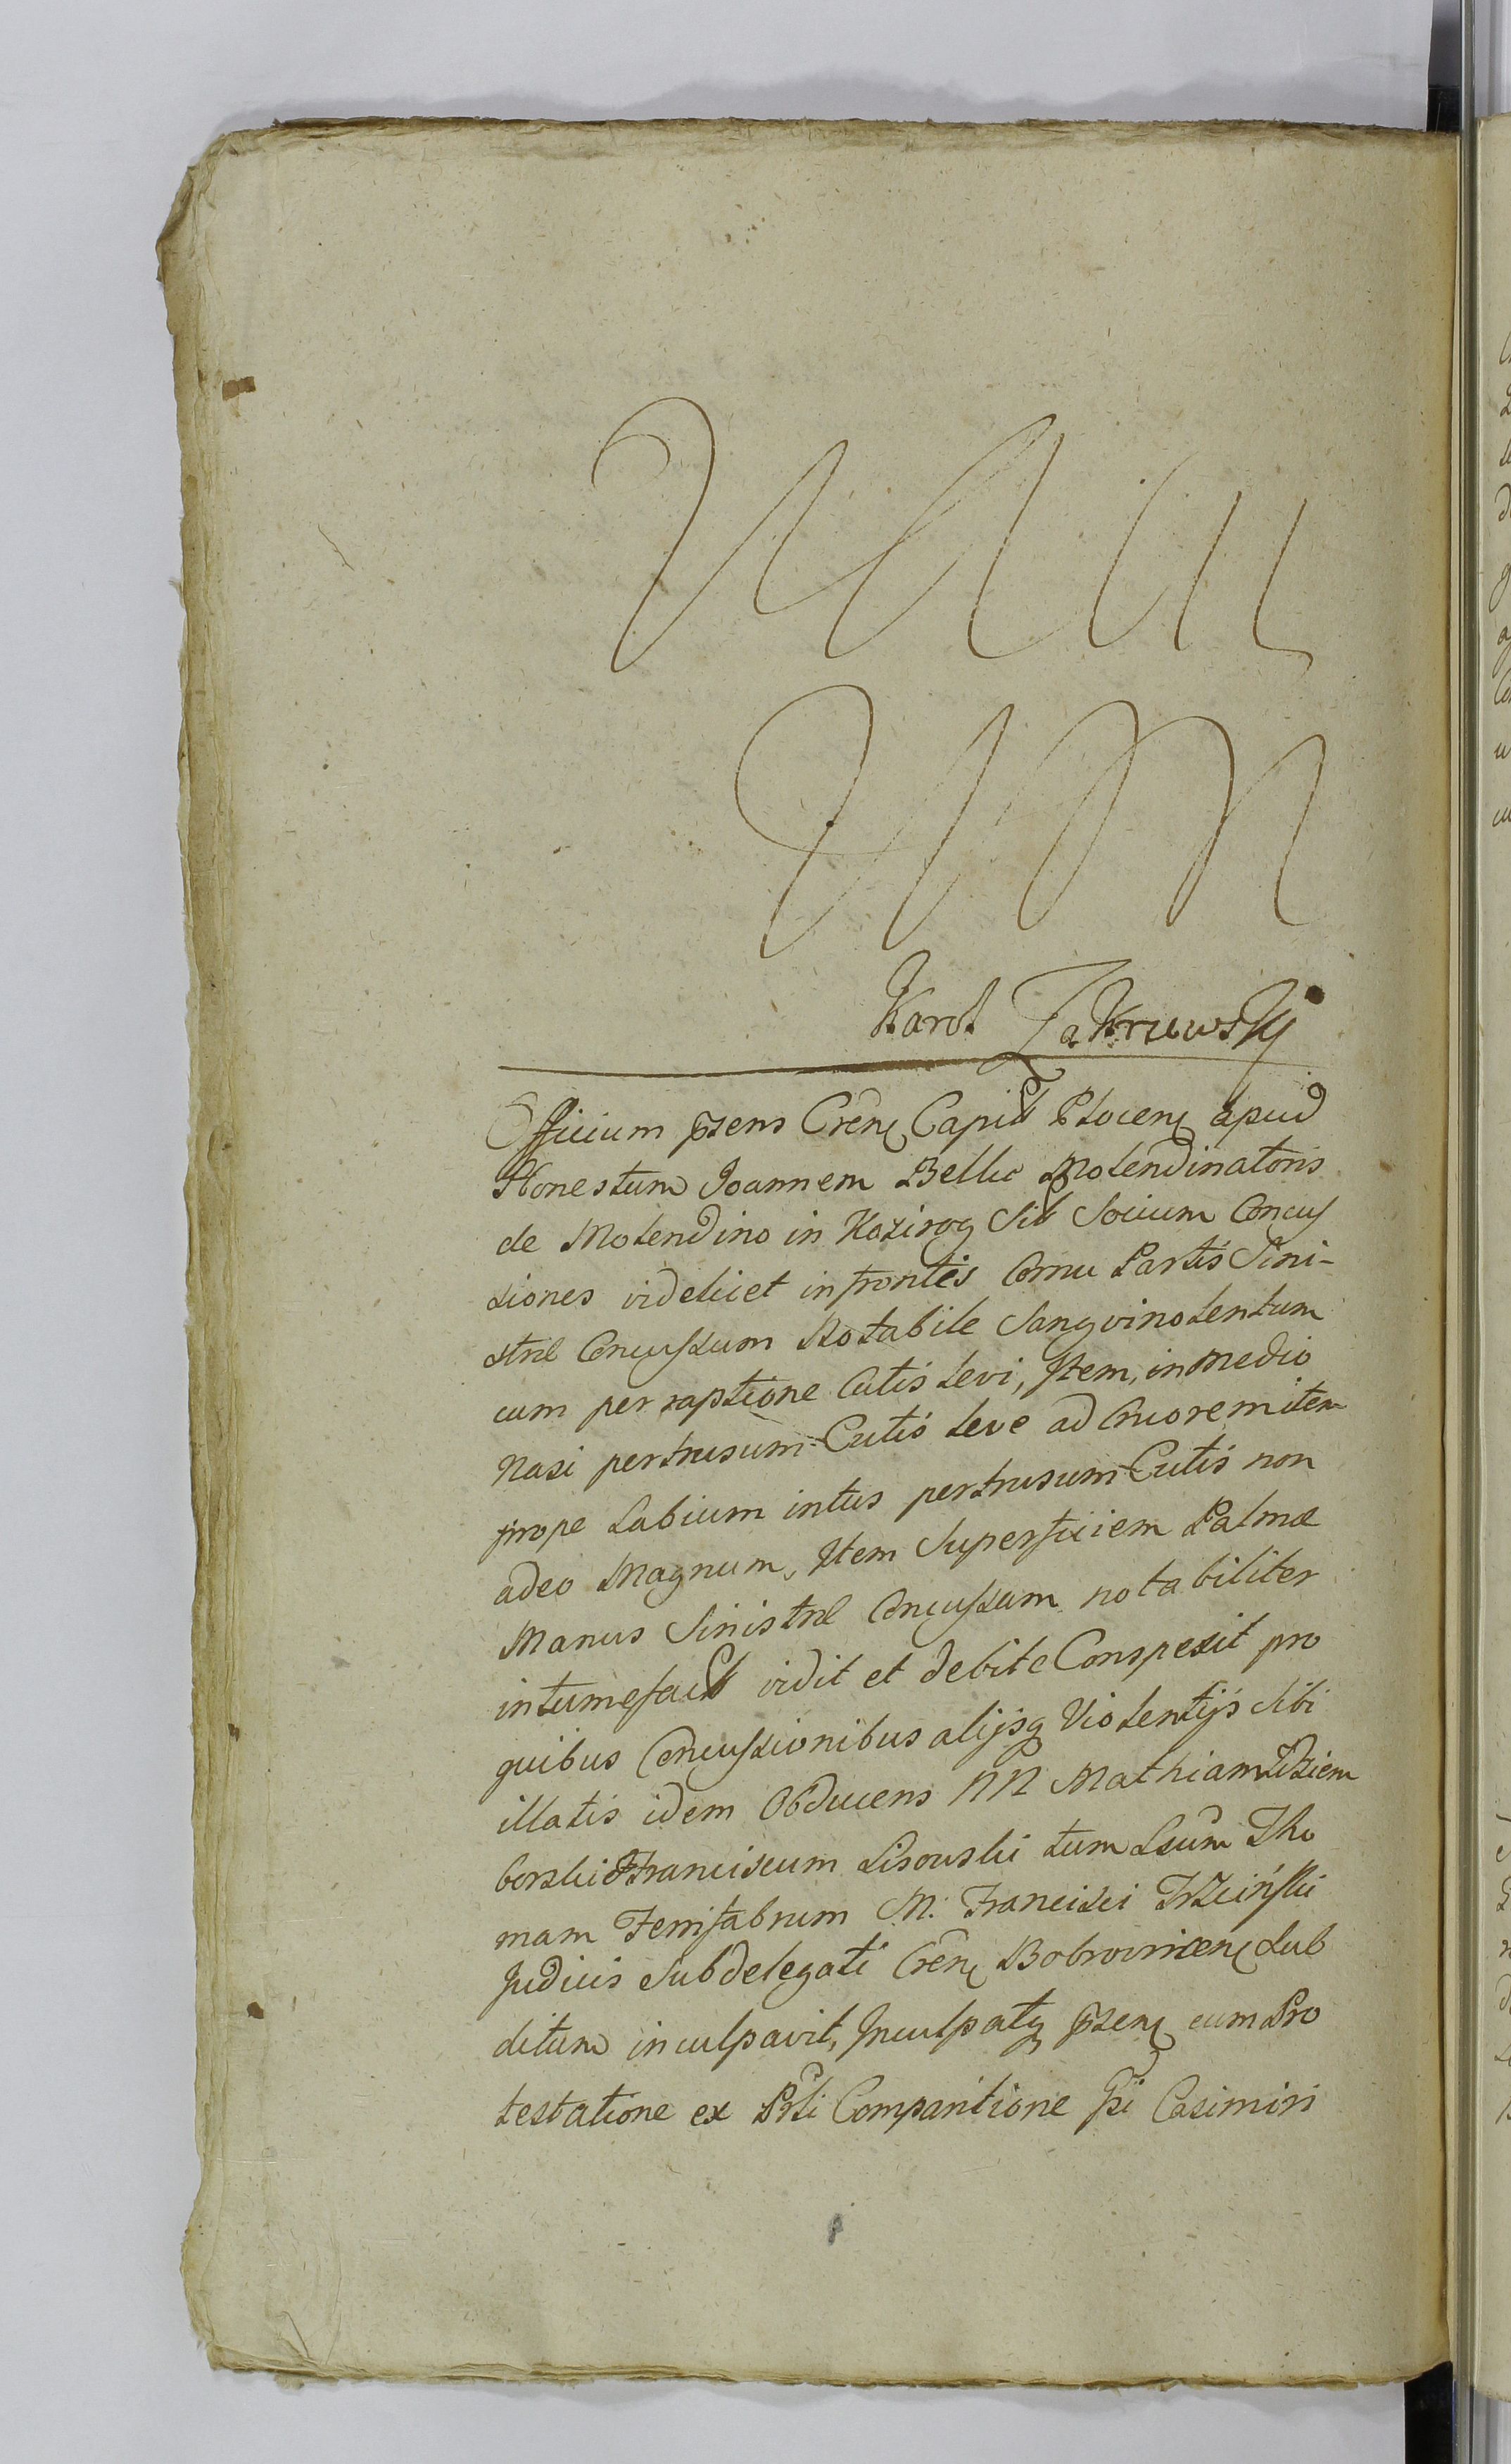 Karol Zakrzewskj
Officium pżens Cren Capitt Plocen apud
Honestum Joannem Bellic Molendinatoris
de Molendino in Kozirog Sil Socium Concus
siones videlicet in frontis Cornu Partis Sini-
stræ Concussum Notabile Sangvinolentum
cum perraptione Cutis levi, Item, in medio
Nasi pertrusum Cutis leve ad Cruorem item
prope Labium intus pertrusum Cutis non
adeo Magnum, Item Superficiem Palmæ
Manus Sinistræ Concussam notabiliter
intumefact vidit et debite Conspexit pro
quibus Concussionibus alijsq Violentijs sibi
illatis idem Obducens NN Mathiam Dziem
borski Franciscum Lisouski tum Lsum Tho
mam Ferrifabrum M. Francisci Trzciński
Judicis Subdelegati Cren Bobrovnicen Sub
ditum inculpavit, Inculpatq pżen cum Pro
testatione ex Prti Comparitione Gsi Casimiri